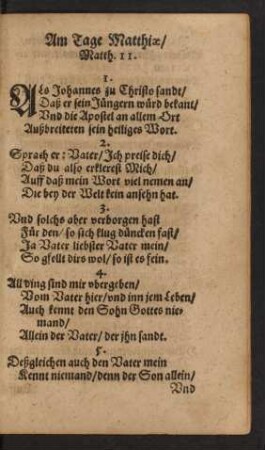 Am Tage Matthiæ/
Matth. 11.
1.
ALs Johannes zu Christo sandt/
Daß er sein Jüngern würd bekant/
Vnd die Apostel an allem Ort
Außbreiteten sein heiliges Wort.
2.
Sprach er: Vater/ Ich preise dich/
Daß du also erklerest Mich/
Auff daß mein Wort viel nemen an/
Die bey der Welt kein ansehn hat.
3.
Vnd solchs aber verborgen hast
Für den/ so sich klug düncken fast/
Ja Vater liebster Vater mein/
So gfellt dirs wol/ so ist es fein.
4.
All ding sind mir vbergeben/
Vom Vater hier/ vnd inn jem Leben/
Auch kennt den Sohn Gottes nie-
mand/
Allein der Vater/ der jhn sandt.
5.
Deßgleichen auch den Vater mein
Kennt niemand/ denn der Son allein/
Vnd